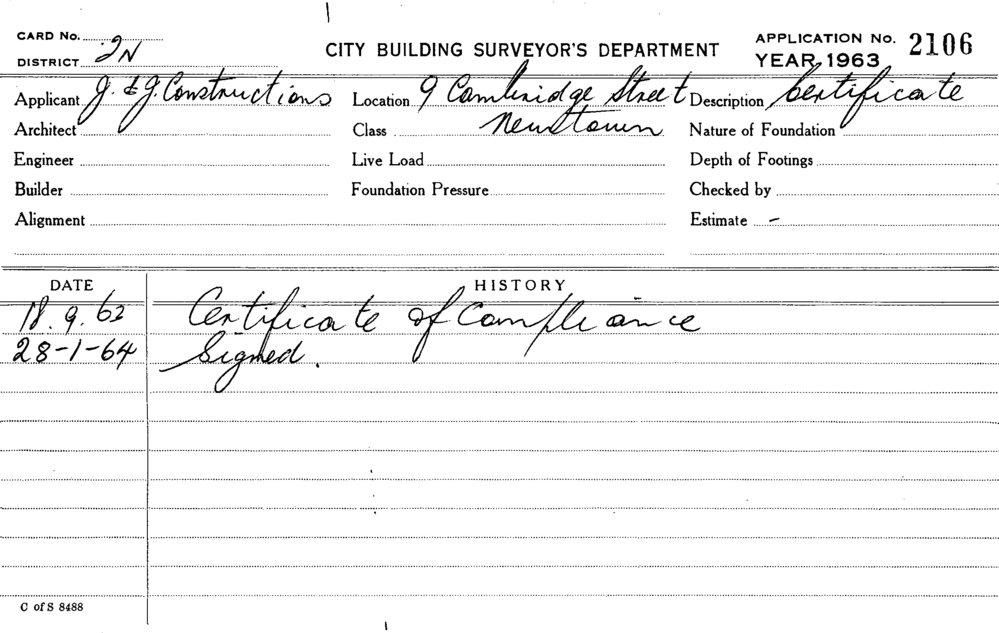 CARD No.
DISTRICT 2N
CITY BUILDING SURVEYOR'S DEPARTMENT
APPLICATION No. 2106
YEAR 1963
Applicant J. & J. Constructions
Location 9 Cambridge Street
Newtown
Description Certificate
Architect
Class
Nature of Foundation
Engineer
Live Load
Depth of Footings
Builder
Foundation Pressure
Checked by
Alignment
Estimate –
DATE
HISTORY
18.9.63 Certificate of Compliance
28-1-64 Signed.
C of S 8488